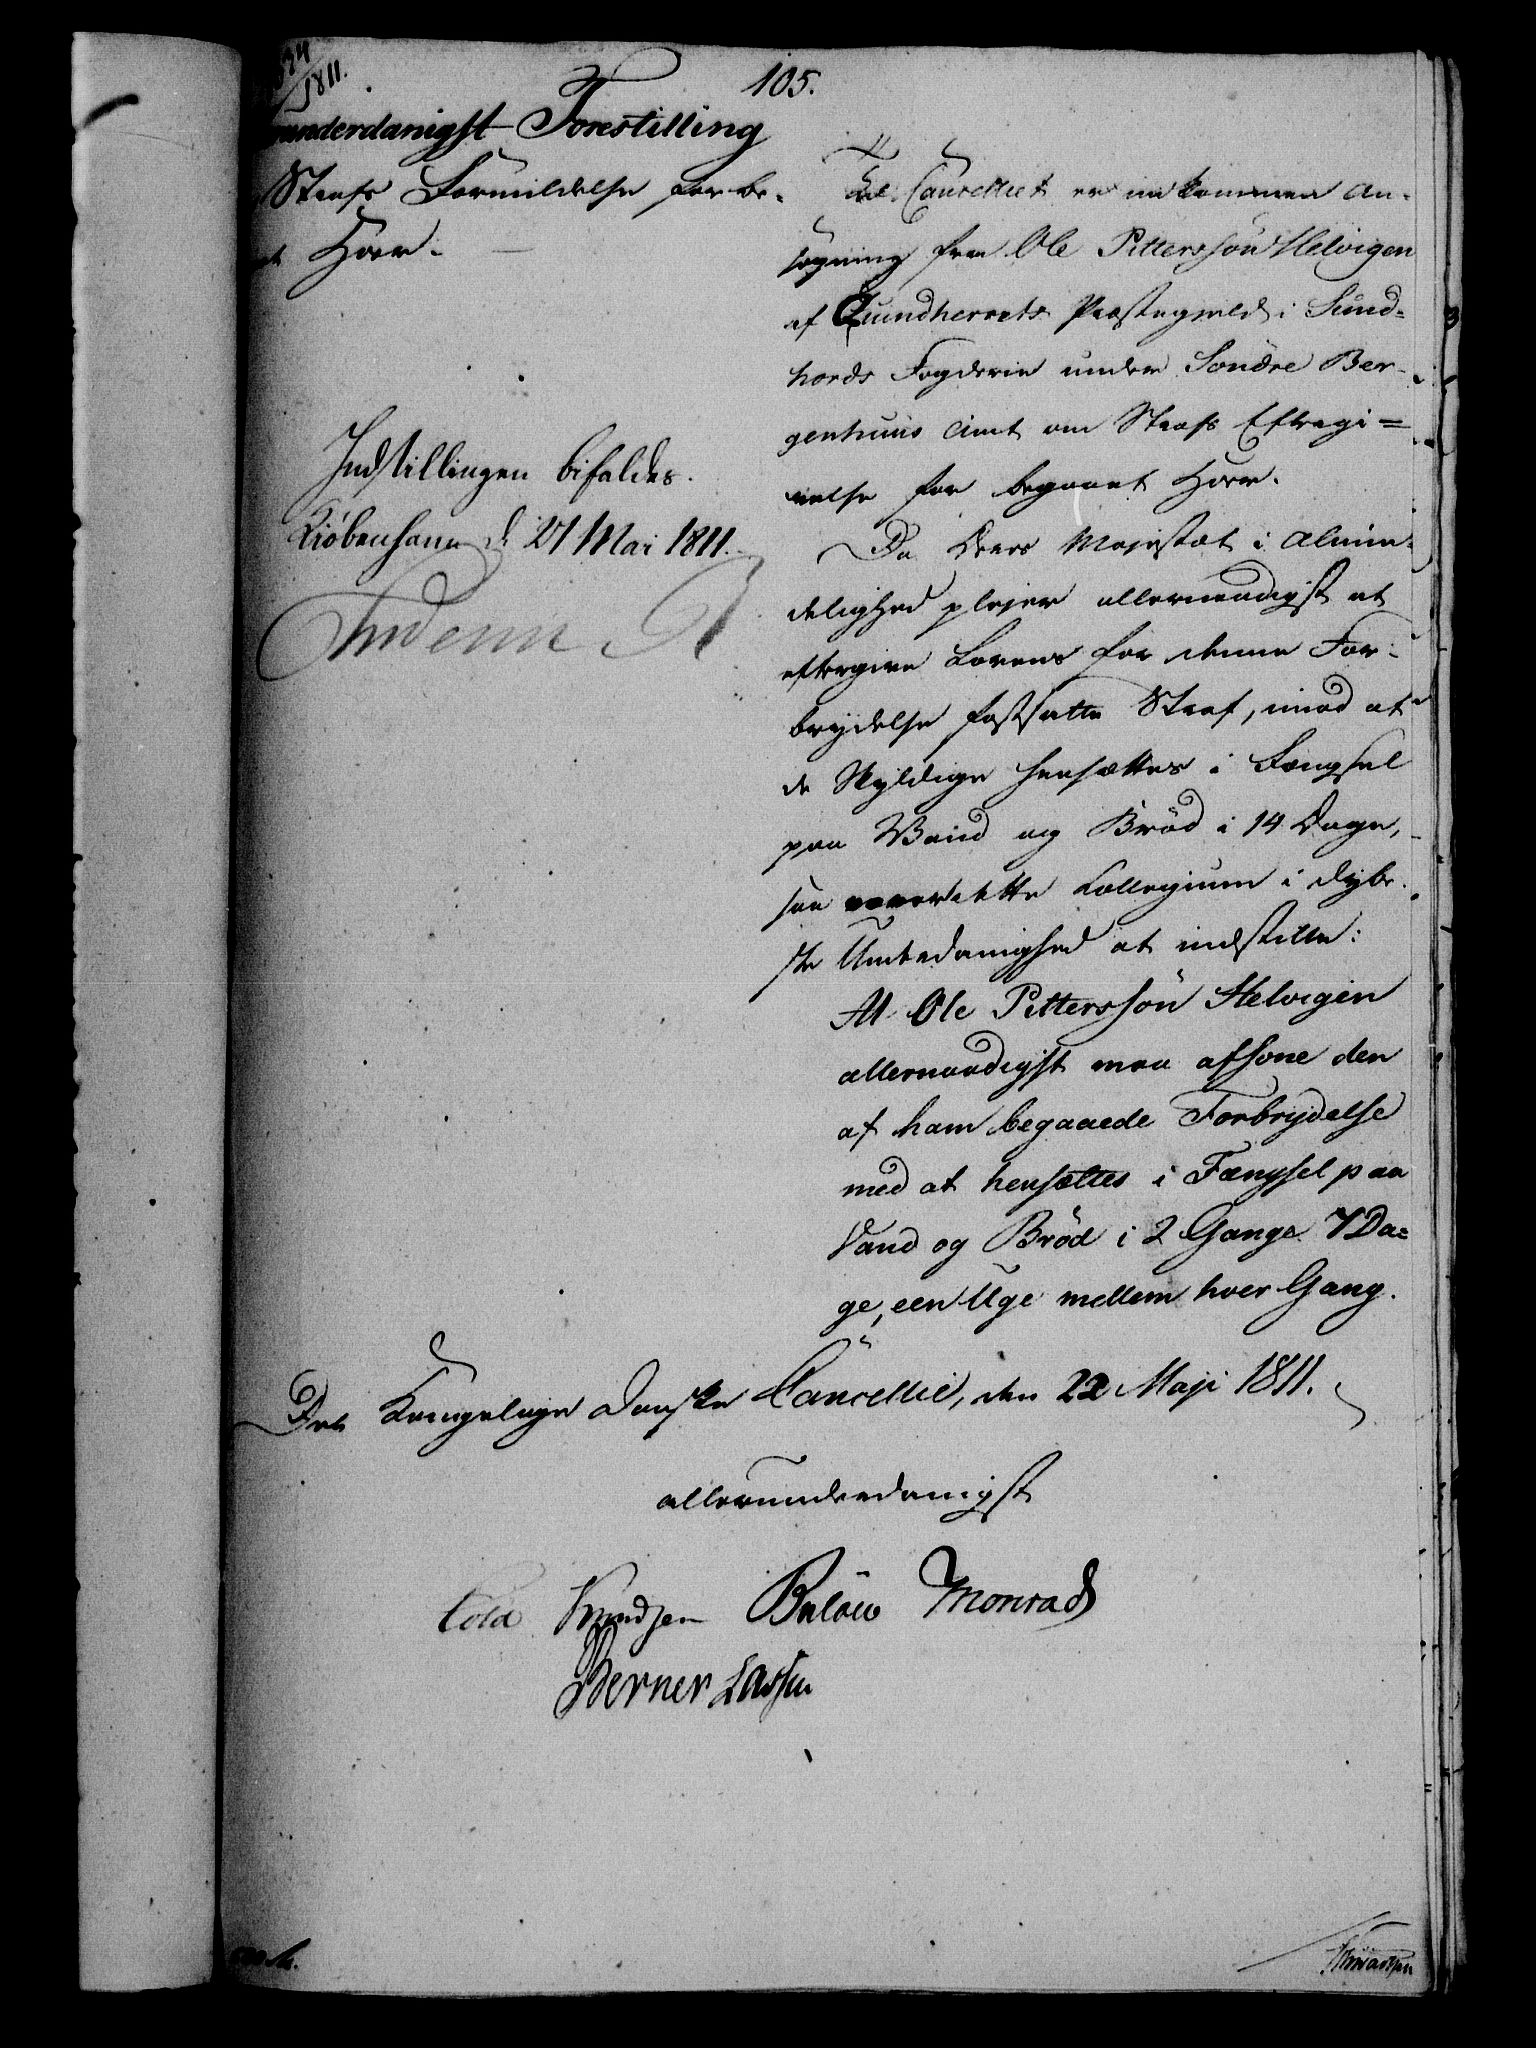 105.
1811.
underdanigst Forestilling
Strafs Formildelse for be-
Hoer.
Indstillingen bifaldes.
Kiøbenhavn d. 27 Mai 1811.
Frideric R
Til Cancelliet er indkommen An-
søgning fra Ole Pitterssön Helvigen
af Quindherrets Præstegield i Sund-
hords Fogderie under Sondre Ber-
genhuus Amt om Strafs Eftergi=
velse for begaaet Hoer.
Da Deres Majestæt i Almin-
delighed plejer allernaadigst at
eftergive Lovens for denne For-
brydelse fastsatte Straf, imod at
de Skyldige hensættes i Fængsel
paa Vand og Bröd i 14 Dage,
saa dette Collegium i dybe-
ste Underdanighed at indstille:
At Ole Pitterssön Helvigen
allernaadigst maa afsone den
af ham begaaede Forbrydelse
med at hensættes i Fængsel paa
Vand og Bröd i 2 Gange 7 Da=
ge, een Uge mellem hver Gang.
Det Kongelige Danske Cancellie, den 22 Maji 1811.
allerunderdanigst
Cold Knudsen Bülow Monrad
Berner Lassen